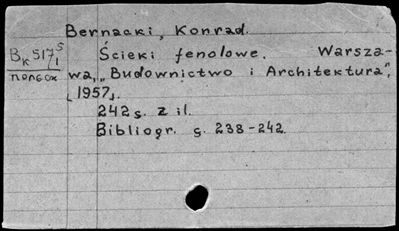 Bernacki, Konrad.
Bк 517 5/1
польск
Ścieki fenolowe. Warsza-
wa, „Budownictwo i Architektura",
[1957].
242 s. z il.
Bibliogr. s. 238-242.